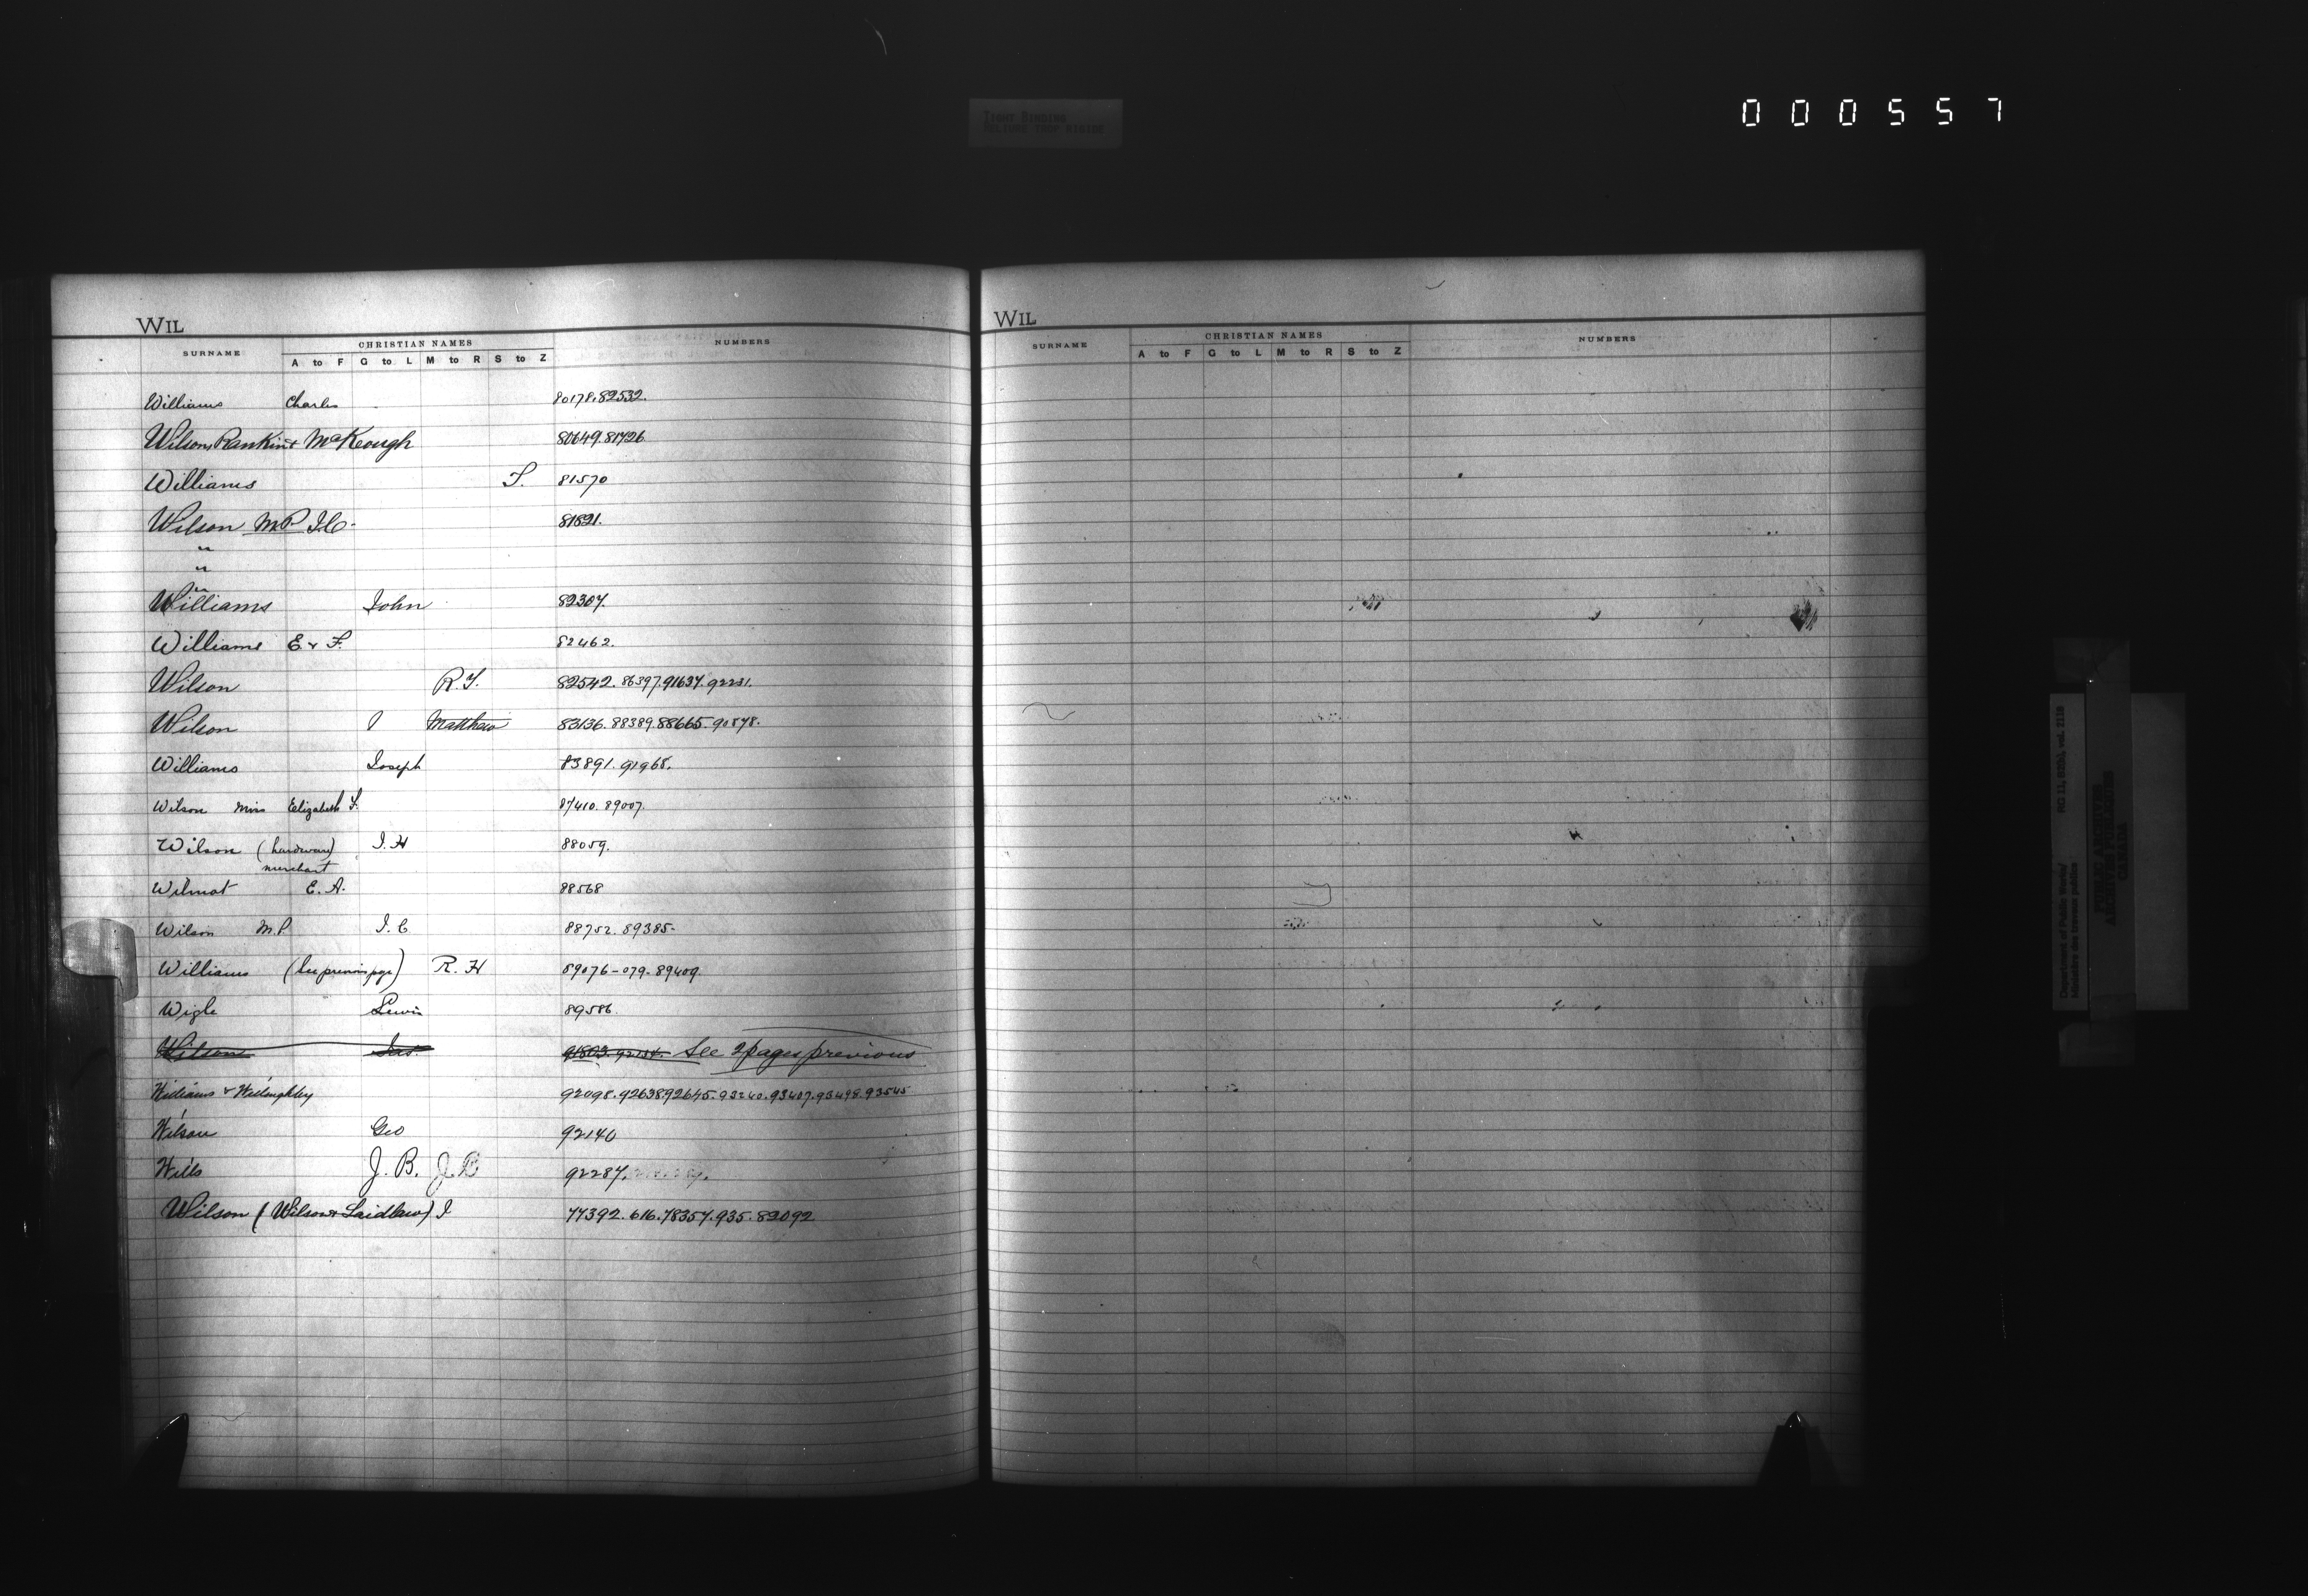 000557
TIGHT BINDING
RELIURE TROP RIGIDE
WIL
SURNAME CHRISTIAN NAMES NUMBERS
A to F G to L M to R S to Z
Williams Charles 80178.82532.
Wilson, Rankin & McKeough 80649.81726
Williams T. 81570
Wilson M.P. J.C. 81821.
"
"
"
Williams John 82307.
Williams E & F. 82462.
Wilson R.T. 82542.86397.91637.92231.
Wilson Matthew 83136.88389.88665.90878.
Williams Joseph 83891.91968.
Wilson Miss Elizabeth F. 87410.89007.
Wilson (hardware) J.H 88059.
merchant
Wilmot E.A. 88568
Wilson M.P. J.C 88752.89385-
Williams (See previous page) R.H 89076-079-89409.
Wigle Lewis 89586.
Wilson Jas. 91803.92134. See 2 pages previous
Williams & Willoughby 92098.92638.92645.93240.93407.93498.93545
Wilson Geo 92140
Wills J.B. J.B 92287.
Wilson (Wilson & Laidlaw) J 77392.616.78357.935.82092
WIL
SURNAME CHRISTIAN NAMES NUMBERS
A to F G to L M to R S to Z
Department of Public Works/
Ministère des travaux publics
RG 11, B2(d), vol. 2119
PUBLIC ARCHIVES
ARCHIVES PUBLIQUES
CANADA